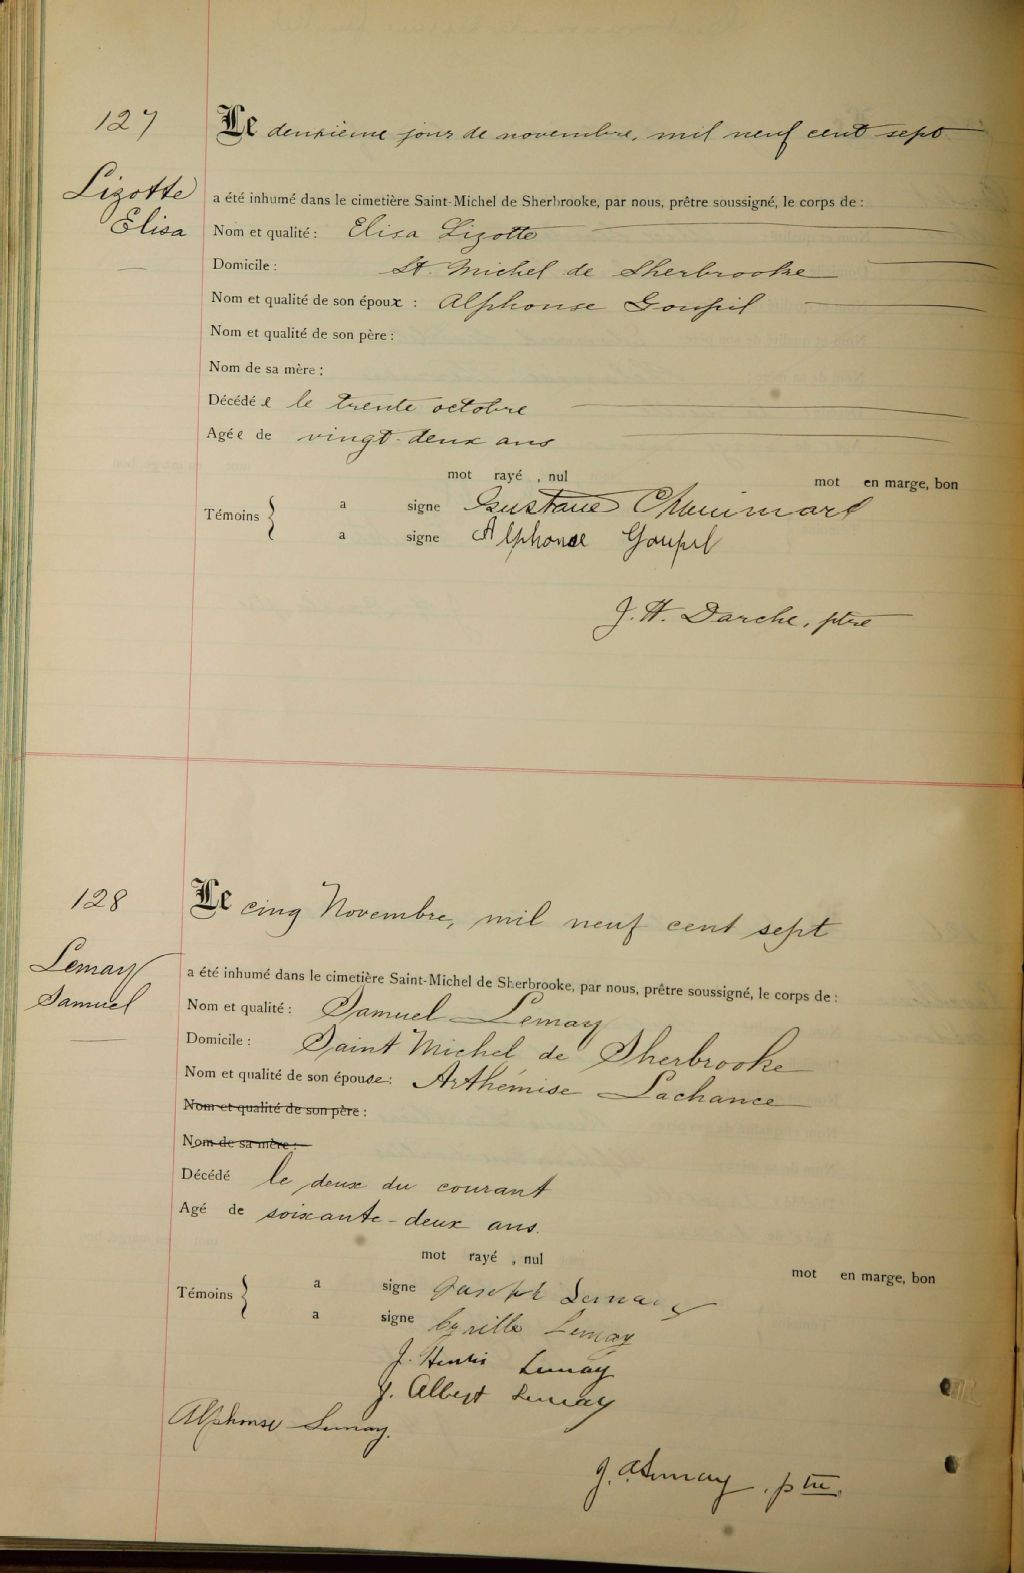 127
Le deuxième jour de novembre, mil neuf cent sept
Lizotte
Elisa
a été inhumé dans le cimetière Saint-Michel de Sherbrooke, par nous, prêtre soussigné, le corps de :
Nom et qualité : Elisa Lizotte
Domicile : St. Michel de Sherbrooke
Nom et qualité de son époux : Alphonse Goupil
Nom et qualité de son père :
Nom de sa mère :
Décédée le trente octobre
Agée de vingt-deux ans
mot rayé , nul mot en marge, bon
Témoins { a signe Gustave
a signe Alphonse Goupil
J. H. Darche, ptre
128
Le cinq Novembre, mil neuf cent sept
Lemay
Samuel
a été inhumé dans le cimetière Saint-Michel de Sherbrooke, par nous, prêtre soussigné, le corps de :
Nom et qualité : Samuel Lemay
Domicile : Saint Michel de Sherbrooke
Nom et qualité de son épouse : Arthémise Lachance
Nom et qualité de son père :
Nom de sa mère :
Décédé le deux du courant
Agé de soixante-deux ans.
mot rayé , nul mot en marge, bon
Témoins { a signe Joseph Lemay
a signe Cyrille Lemay
J. Henri Lemay
J. Albert Lemay
Alphonse Lemay.
J. A. Lemay, ptre.